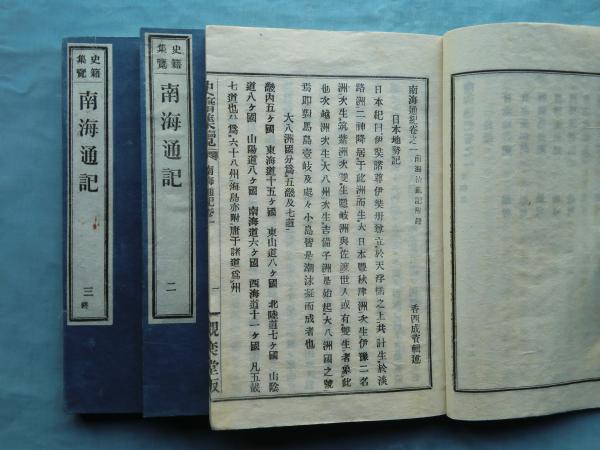 史籍
集覽
南海通記
三終
史籍
集覽
南海通記
二
南海通記卷之一
香西成資輯述
日本地勢記
日本紀曰伊弉諾尊伊弉冊尊立於天浮橋之上共計生於淡
路洲二神降居于此洲而生大日本豐秋津洲次生伊豫二名
洲次生筑紫洲次雙生隱岐洲與佐渡世人或有雙生者象此
也次越洲次生大八州次生吉備子洲是始起大八洲國之號
焉即對馬島壹岐及處々小島皆是潮沫凝而成者也
大八洲國分爲五畿及七道
畿內五ケ國 東海道十五ケ國 東山道八ケ國 北陸道七ケ國 山陰
道八ケ國 山陽道八ケ國 南海道六ケ國 西海道十一ケ國 凡五畿
七道也分爲六十八州海島亦附庸于諸道爲州
南海通記卷一
一
觀奕堂版